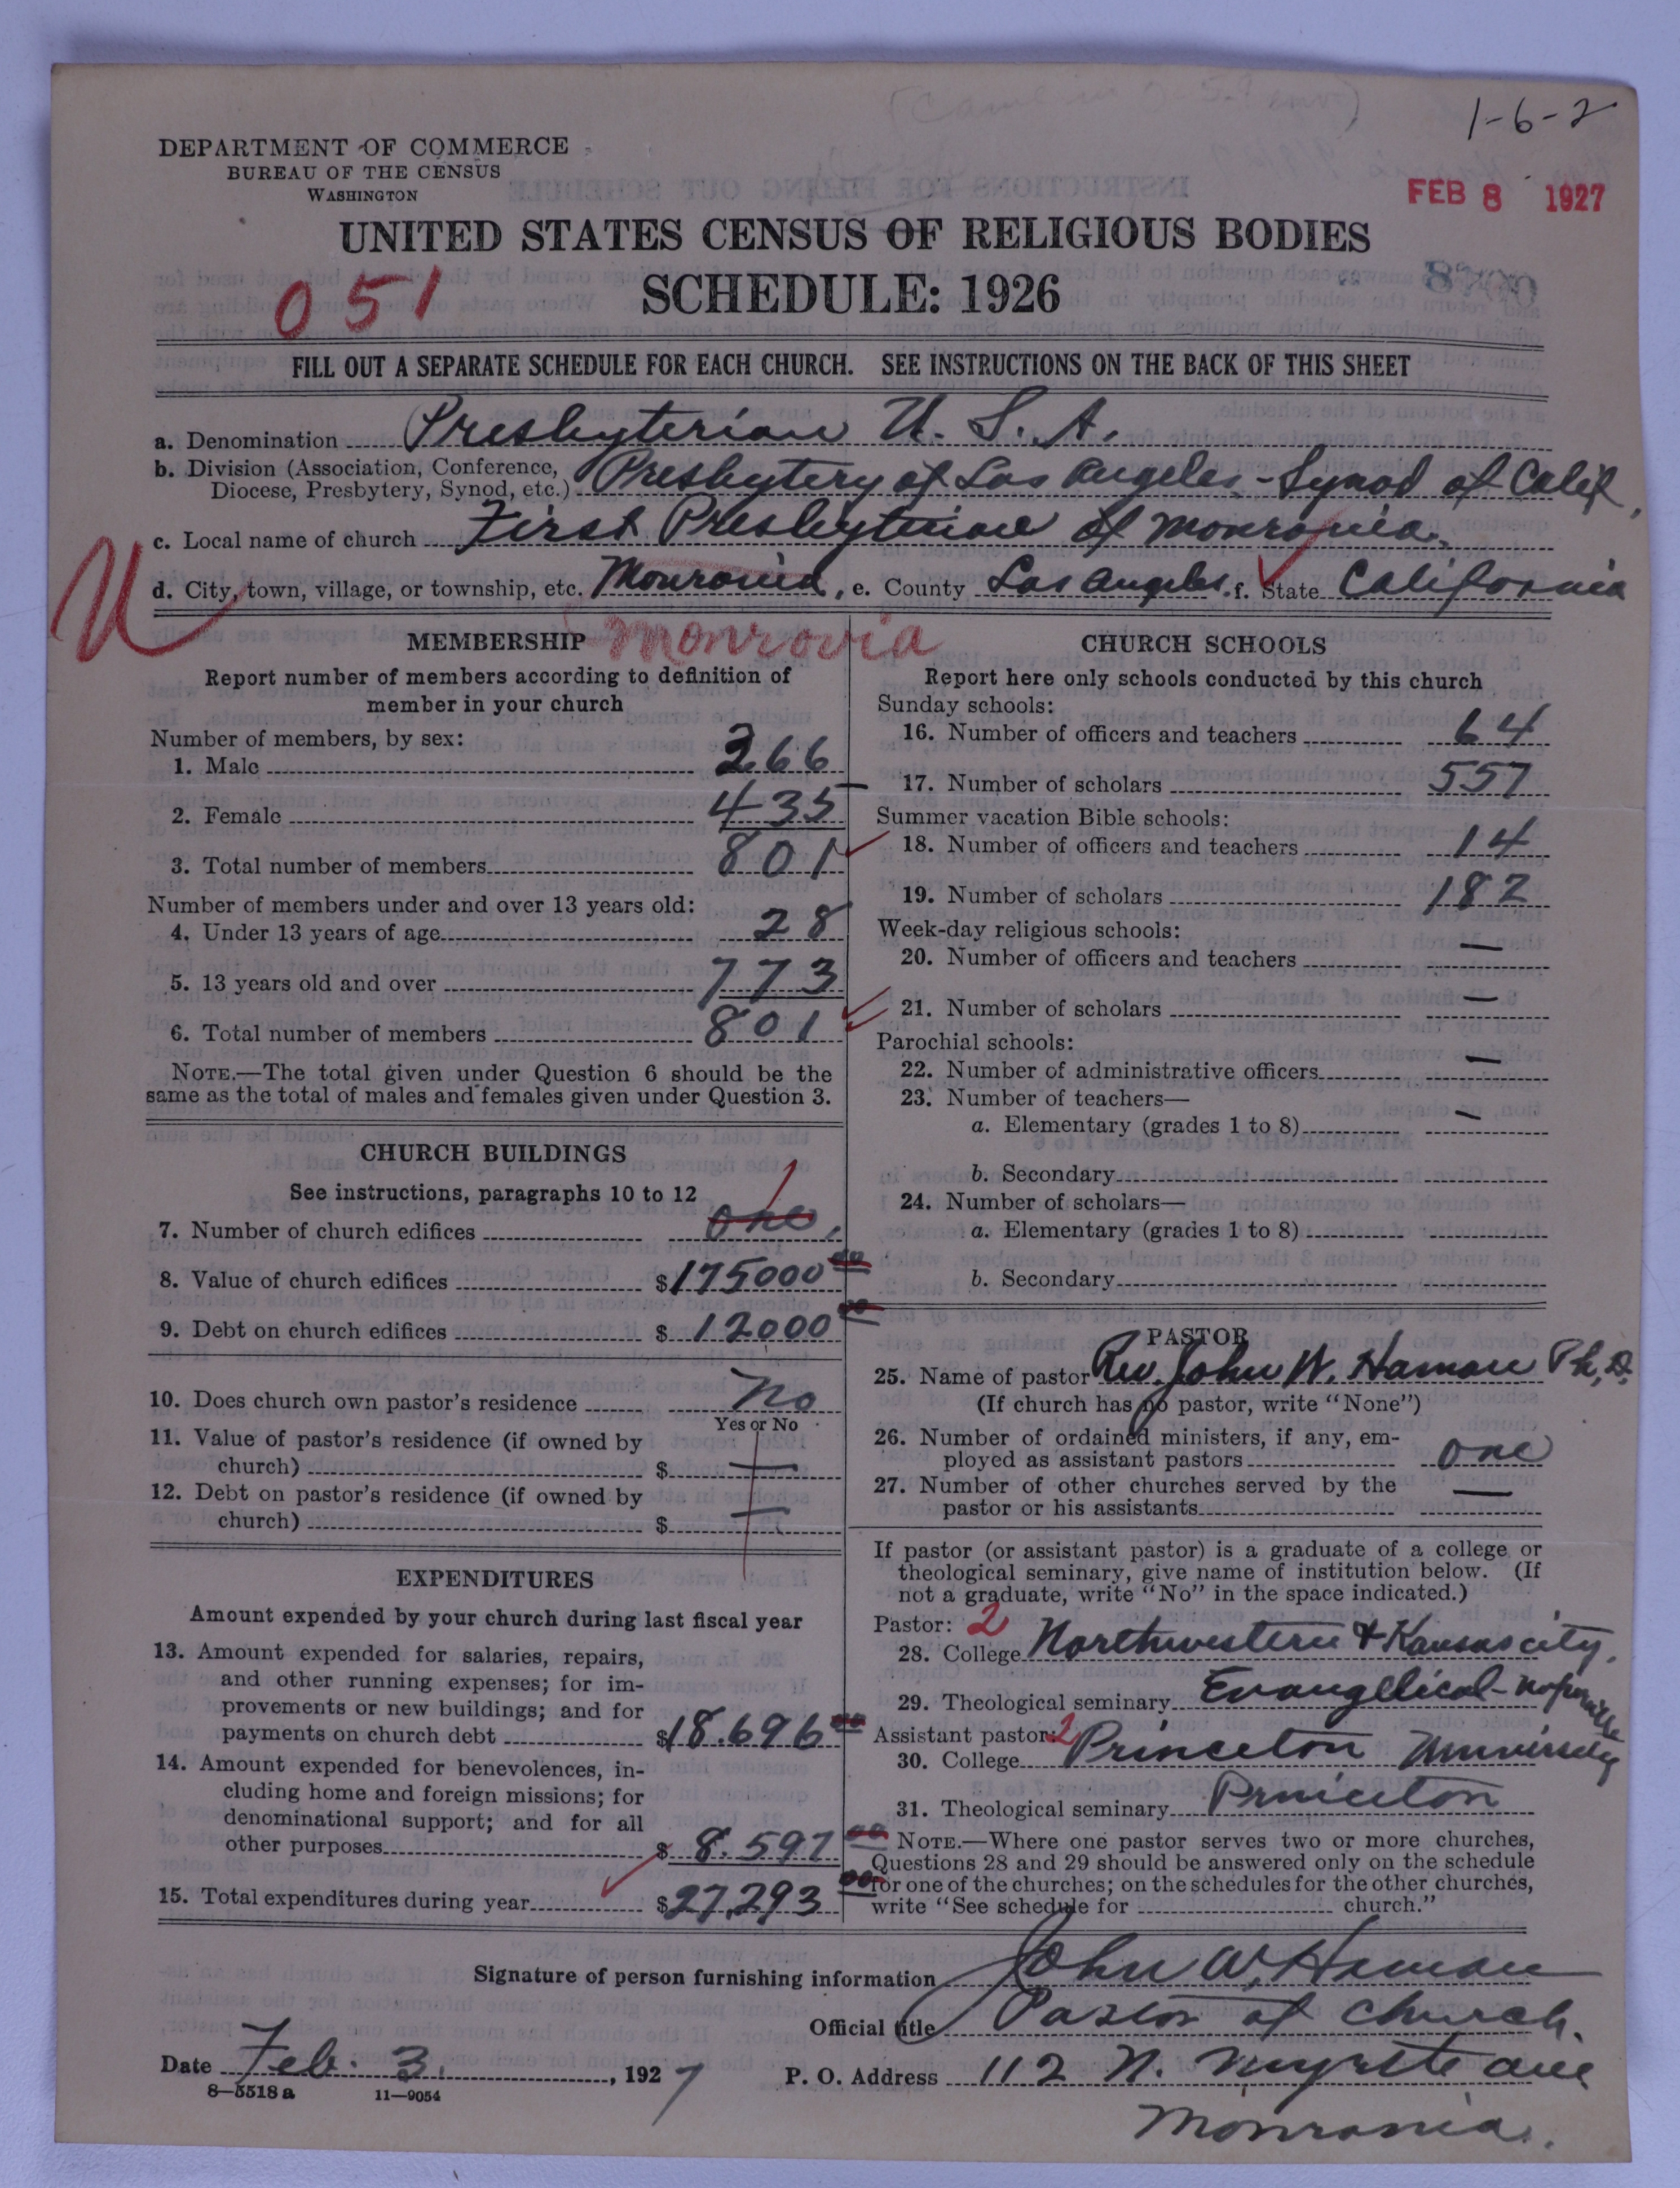 1-6-2
DEPARTMENT OF COMMERCE
BUREAU OF THE CENSUS
WASHINGTON
FEB 8 1927
UNITED STATES CENSUS OF RELIGIOUS BODIES
051
SCHEDULE: 1926
FILL OUT A SEPARATE SCHEDULE FOR EACH CHURCH. SEE INSTRUCTIONS ON THE BACK OF THIS SHEET
a. Denomination Presbyterian U. S. A.
b. Division (Association, Conference, Diocese, Presbytery, Synod, etc.) Presbytery of Los Angeles - Synod of Calif,
c. Local name of church First Presbyterian of Monrovia.
U
d. City, town, village, or township, etc. Monrovia, e. County Los Angeles. f. State California
Monrovia
MEMBERSHIP
Report number of members according to definition of
member in your church
Number of members, by sex:
1. Male 366
2. Female 435
3. Total number of members 801
Number of members under and over 13 years old:
4. Under 13 years of age 28
5. 13 years old and over 773
6. Total number of members 801
NOTE.—The total given under Question 6 should be the
same as the total of males and females given under Question 3.
CHURCH BUILDINGS
See instructions, paragraphs 10 to 12
7. Number of church edifices one 1
8. Value of church edifices $175000 00
9. Debt on church edifices $12000 00
10. Does church own pastor's residence No
Yes or No
11. Value of pastor's residence (if owned by
church) $ —
12. Debt on pastor's residence (if owned by
church) $ —
EXPENDITURES
Amount expended by your church during last fiscal year
13. Amount expended for salaries, repairs,
and other running expenses; for im-
provements or new buildings; and for
payments on church debt $18.696 00
14. Amount expended for benevolences, in-
cluding home and foreign missions; for
denominational support; and for all
other purposes $8.597 00
15. Total expenditures during year $27,293 00
CHURCH SCHOOLS
Report here only schools conducted by this church
Sunday schools:
16. Number of officers and teachers 64
17. Number of scholars 557
Summer vacation Bible schools:
18. Number of officers and teachers 14
19. Number of scholars 182
Week-day religious schools:
20. Number of officers and teachers —
21. Number of scholars —
Parochial schools:
22. Number of administrative officers —
23. Number of teachers—
a. Elementary (grades 1 to 8) —
b. Secondary
24. Number of scholars—
a. Elementary (grades 1 to 8)
b. Secondary
PASTOR
25. Name of pastor Rev. John W. Hamon Ph.D.
(If church has no pastor, write "None")
26. Number of ordained ministers, if any, em-
ployed as assistant pastors one
27. Number of other churches served by the
pastor or his assistants —
If pastor (or assistant pastor) is a graduate of a college or
theological seminary, give name of institution below. (If
not a graduate, write "No" in the space indicated.)
Pastor: 2
28. College Northwestern & Kansas city.
29. Theological seminary Evangelical - Naperville
Assistant pastor: 2
30. College Princeton University
31. Theological seminary Princeton
NOTE.—Where one pastor serves two or more churches,
Questions 28 and 29 should be answered only on the schedule
for one of the churches; on the schedules for the other churches,
write "See schedule for church."
Signature of person furnishing information John W. Hamon
Official title Pastor of Church.
Date Feb. 3. , 1927 P. O. Address 112 N. Myrtle ave
8—5518a 11—9054
Monrovia.